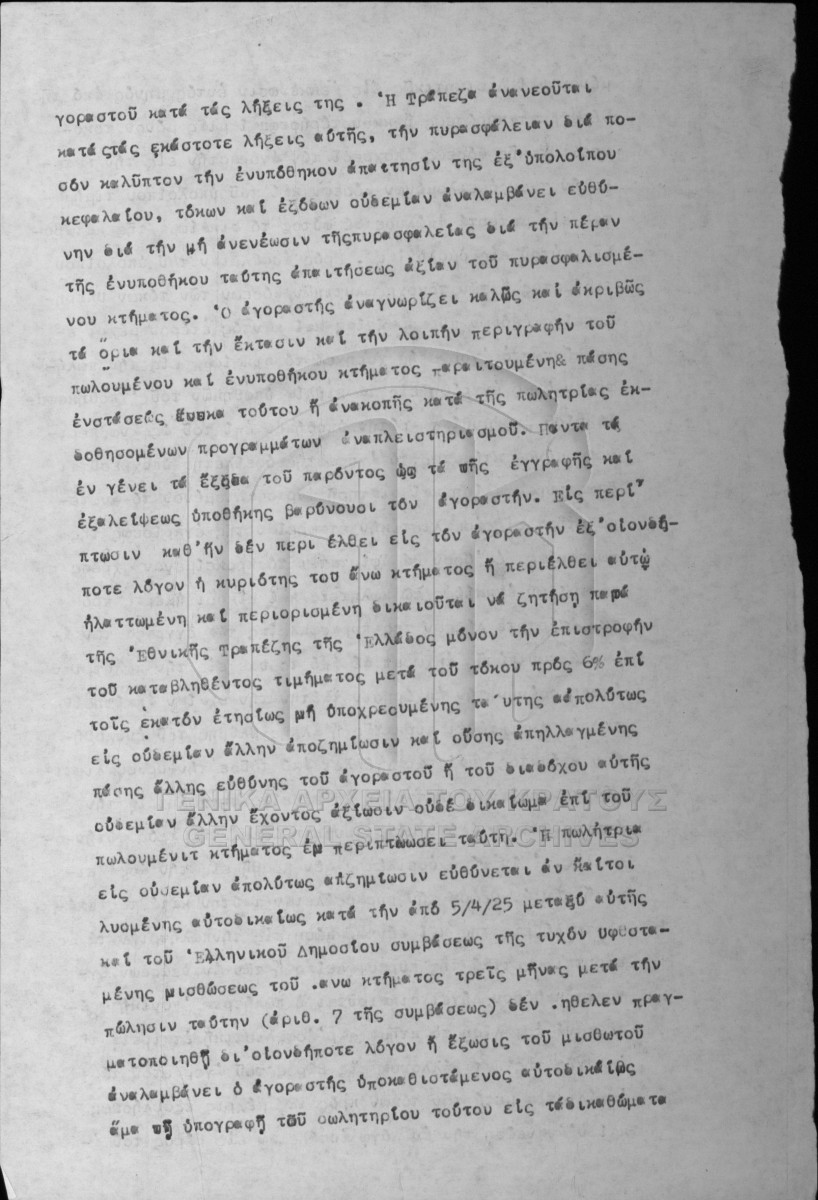 γοραστοῦ κατά τάς λήξεις της . Ἡ Τράπεζα ἀνανεοῦται
κατά ςτάς ἑκάστοτε λήξεις αὐτῆς, τήν πυρασφάλειαν διά πο-
σόν καλῦπτον τήν ἐνυπόθηκον ἀπαιτησίν της ἐξ'ὑπολοίπου
κεφαλαίου, τόκων καί ἐξόδων οὐδεμίαν ἀναλαμβάνει εὐθύ-
νην διά τήν μή ἀνενέωσιν τῆςπυρασφαλείας διά τήν πέραν
τῆς ἐνυποθήκου ταύτης ἀπαιτήσεως ἀξίαν τοῦ πυρασφαλισμέ-
νου κτήματος. Ὁ ἀγοραστής ἀναγνωρίζει καλῶς καί ἀκριβῶς
τά ὅρια καί τήν ἔκτασιν καί τήν λοιπήν περιγραφήν τοῦ
πωλουμένου καί ἐνυποθήκου κτήματος παραιτουμένη& πάσης
ἐνστάσεως τούτου ἤ ἀνακοπῆς κατά τῆς πωλητρίας ἐκ-
δοθησομένων προγραμμάτων ἀναπλειστηριασμοῦ. Παντα τά
ἐν γένει τά ἔξοδα τοῦ παρόντος ὡς τά τῆς ἐγγραφῆς καί
ἐξαλείψεως ὑποθήκης βαρύνουσι τόν ἀγοραστήν. Εἰς περί
πτωσιν καθ'ἥν δέν περι έλθει εἰς τόν ἀγοραστήν ἐξ'οἱονδή-
ποτε λόγον ἡ κυριότης του ἄνω κτήματος ἤ περιέλθει αὐτῷ
ἠλαττωμένη καί περιορισμένη δικαιοῦται νά ζητήσῃ παρά
τῆς Ἐθνικῆς Τραπέζης τῆς Ἑλλάδος μόνον τήν ἐπιστροφήν
τοῦ καταβληθέντος τιμήματος μετά τοῦ τόκου πρός 6% ἐπί
τοῖς ἑκατόν ἐτησίως μή ὑποχρεουμένης τα´υτης ἀαπολύτως
εἰς οὐδεμίαν ἄλλην ἀποζημίωσιν καί οὔσης ἀπηλλαγμένης
πάσης ἄλλης εὐθύνης τοῦ ἀγοραστοῦ ἤ τοῦ διαδόχου αὐτῆς
οὐδεμίαν ἄλλην ἔχοντος ἀξίωσιν οὐδέ δικαίωμα ἐπί τοῦ
ΓΕΝΙΚΑ ΑΡΧΕΙΑ ΤΟΥ ΚΡΑΤΟΥΣ
GENERAL STATE ARCHIVES
πωλουμένιτ κτήματος ἐν περιπτώωσει ταύτη. Ἡ πωλήτρια
εἰς οὐδεμίαν ἀπολύτως εὐθύνεται ἀν καίτοι
λυομένης αὐτοδικαίως κατά τήν ἀπό 5/4/25 μεταξύ αὐτῆς
καί τοῦ Ἑλληνικοῦ Δημοσίου συμβάσεως τῆς τυχόν υφεστα-
μένης μισθώσεως τοῦ .ανω κτήματος τρεῖς μῆνας μετά τήν
πώλησιν ταύτην (ἀριθ. 7 τῆς συμβάσεως) δέν .ηθελεν πραγ-
ματοποιηθῇ δι'οἱονδήποτε λόγον ἤ ἔξωσις τοῦ μισθωτοῦ
ἀναλαμβάνει ὁ ἀγοραστής ὑποκαθιστάμενος αὐτοδικαίως
ἅμα τῇ ὑπογραφῇ τοῦ σωλητηρίου τούτου εἰς τάδικαθώματα